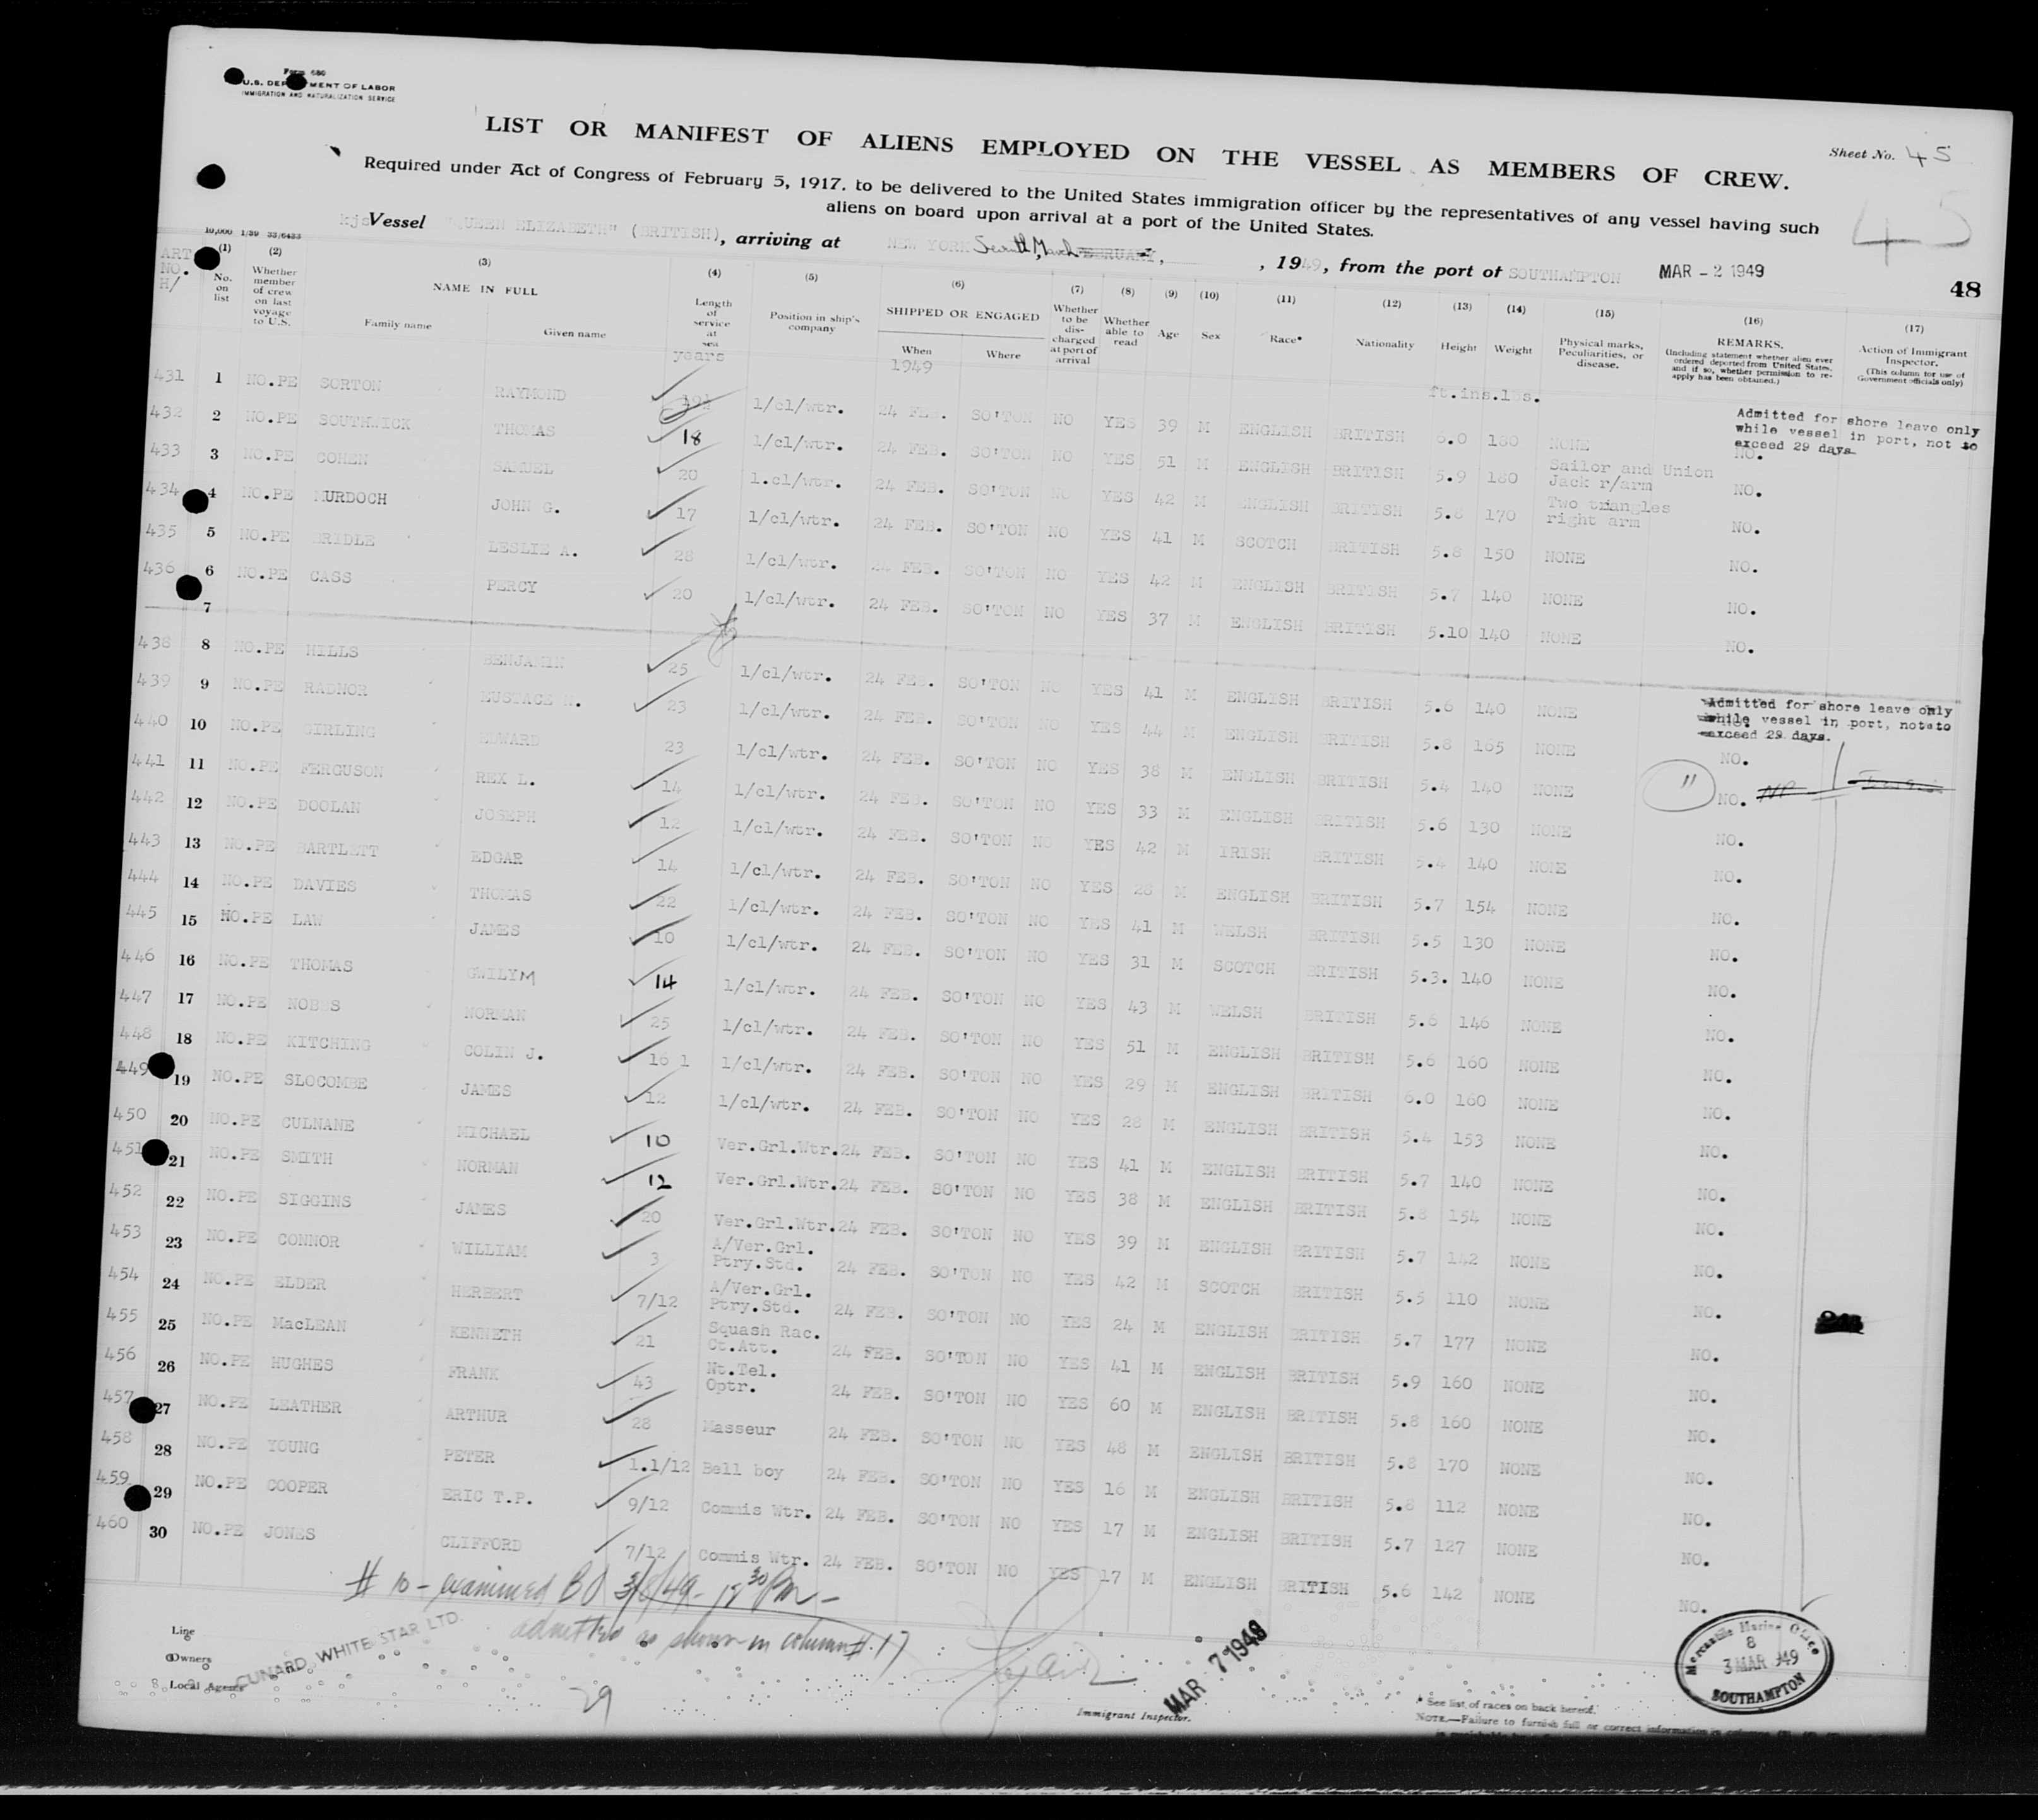 Form 680
U.S. DEPARTMENT OF LABOR
IMMIGRATION AND NATURALIZATION SERVICE
LIST OR MANIFEST OF ALIENS EMPLOYED ON THE VESSEL AS MEMBERS OF CREW.
Sheet No. 45
45
Required under Act of Congress of February 5, 1917, to be delivered to the United States immigration officer by the representatives of any vessel having such
aliens on board upon arrival at a port of the United States.
kjs Vessel "QUEEN ELIZABETH" (BRITISH), arriving at NEW YORK March, 1949, from the port of SOUTHAMPTON MAR - 2 1949
48
10,000 1/39
ART NO. H/
(1) No. on list
(2) Whether member of crew on last voyage to U.S.
(3) NAME IN FULL Family name Given name
(4) Length of service at sea years
(5) Position in ship's company
(6) SHIPPED OR ENGAGED When 1949 Where
(7) Whether to be discharged at port of arrival
(8) Whether able to read
(9) Age
(10) Sex
(11) Race*
(12) Nationality
(13) Height
(14) Weight
ft.ins.lbs.
(15) Physical marks, Peculiarities, or disease.
(16) REMARKS. (Including statement whether alien ever ordered deported from United States, and if so, whether permission to reapply has been obtained.)
(17) Action of Immigrant Inspector. (This column for use of Government officials only)
Admitted for shore leave only
while vessel in port, not to
exceed 29 days
431 1 NO.PE SORTON RAYMOND 1/cl/wtr. 24 FEB. SO'TON NO YES 39 M ENGLISH BRITISH 6.0 180 NONE NO.
432 2 NO.PE SOUTHWICK THOMAS 18 1/cl/wtr. 24 FEB. SO'TON NO YES 51 M ENGLISH BRITISH 5.9 180 Sailor and Union Jack r/arm NO.
433 3 NO.PE COHEN SAMUEL 20 1.cl/wtr. 24 FEB. SO'TON NO YES 42 M ENGLISH BRITISH 5.8 170 Two triangles right arm NO.
434 4 NO.PE MURDOCH JOHN G. 17 1/cl/wtr. 24 FEB. SO'TON NO YES 41 M SCOTCH BRITISH 5.8 150 NONE NO.
435 5 NO.PE BRIDLE LESLIE A. 28 1/cl/wtr. 24 FEB. SO'TON NO YES 42 M ENGLISH BRITISH 5.7 140 NONE NO.
436 6 NO.PE CASS PERCY 20 1/cl/wtr. 24 FEB. SO'TON NO YES 37 M ENGLISH BRITISH 5.10 140 NONE NO.
7
438 8 NO.PE HILLS BENJAMIN 25 1/cl/wtr. 24 FEB. SO'TON NO YES 41 M ENGLISH BRITISH 5.6 140 NONE
Admitted for shore leave only
while vessel in port, not to
exceed 29 days.
439 9 NO.PE RADNOR EUSTACE N. 23 1/cl/wtr. 24 FEB. SO'TON NO YES 44 M ENGLISH BRITISH 5.8 165 NONE NO.
440 10 NO.PE GIRLING EDWARD 23 1/cl/wtr. 24 FEB. SO'TON NO YES 38 M ENGLISH BRITISH 5.4 140 NONE NO.
441 11 NO.PE FERGUSON REX L. 14 1/cl/wtr. 24 FEB. SO'TON NO YES 33 M ENGLISH BRITISH 5.6 130 NONE NO.
442 12 NO.PE DOOLAN JOSEPH 12 1/cl/wtr. 24 FEB. SO'TON NO YES 42 M IRISH BRITISH 5.4 140 NONE NO.
443 13 NO.PE BARTLETT EDGAR 14 1/cl/wtr. 24 FEB. SO'TON NO YES 28 M ENGLISH BRITISH 5.7 154 NONE NO.
444 14 NO.PE DAVIES THOMAS 22 1/cl/wtr. 24 FEB. SO'TON NO YES 41 M WELSH BRITISH 5.5 130 NONE NO.
445 15 NO.PE LAW JAMES 10 1/cl/wtr. 24 FEB. SO'TON NO YES 31 M SCOTCH BRITISH 5.3. 140 NONE NO.
446 16 NO.PE THOMAS GWILYM 14 1/cl/wtr. 24 FEB. SO'TON NO YES 43 M WELSH BRITISH 5.6 146 NONE NO.
447 17 NO.PE NOBBS NORMAN 25 1/cl/wtr. 24 FEB. SO'TON NO YES 51 M ENGLISH BRITISH 5.6 160 NONE NO.
448 18 NO.PE KITCHING COLIN J. 16 1 1/cl/wtr. 24 FEB. SO'TON NO YES 29 M ENGLISH BRITISH 6.0 160 NONE NO.
449 19 NO.PE SLOCOMBE JAMES 12 1/cl/wtr. 24 FEB. SO'TON NO YES 28 M ENGLISH BRITISH 5.4 153 NONE NO.
450 20 NO.PE CULNANE MICHAEL 10 Ver.Grl.Wtr. 24 FEB. SO'TON NO YES 41 M ENGLISH BRITISH 5.7 140 NONE NO.
451 21 NO.PE SMITH NORMAN 12 Ver.Grl.Wtr. 24 FEB. SO'TON NO YES 38 M ENGLISH BRITISH 5.8 154 NONE NO.
452 22 NO.PE SIGGINS JAMES 20 Ver.Grl.Wtr. 24 FEB. SO'TON NO YES 39 M ENGLISH BRITISH 5.7 142 NONE NO.
453 23 NO.PE CONNOR WILLIAM 3 A/Ver.Grl. Ptry.Std. 24 FEB. SO'TON NO YES 42 M SCOTCH BRITISH 5.5 110 NONE NO.
454 24 NO.PE ELDER HERBERT 7/12 A/Ver.Grl. Ptry.Std. 24 FEB. SO'TON NO YES 24 M ENGLISH BRITISH 5.7 177 NONE NO.
455 25 NO.PE MacLEAN KENNETH 21 Squash Rac. Ct.Att. 24 FEB. SO'TON NO YES 41 M ENGLISH BRITISH 5.9 160 NONE NO.
456 26 NO.PE HUGHES FRANK 43 Nt.Tel. Optr. 24 FEB. SO'TON NO YES 60 M ENGLISH BRITISH 5.8 160 NONE NO.
457 27 NO.PE LEATHER ARTHUR 28 Masseur 24 FEB. SO'TON NO YES 48 M ENGLISH BRITISH 5.8 170 NONE NO.
458 28 NO.PE YOUNG PETER 1.1/12 Bell boy 24 FEB. SO'TON NO YES 16 M ENGLISH BRITISH 5.8 112 NONE NO.
459 29 NO.PE COOPER ERIC T.P. 9/12 Commis Wtr. 24 FEB. SO'TON NO YES 17 M ENGLISH BRITISH 5.7 127 NONE NO.
460 30 NO.PE JONES CLIFFORD 7/12 Commis Wtr. 24 FEB. SO'TON NO YES 17 M ENGLISH BRITISH 5.6 142 NONE NO.
# 10 - examined BO
admitted as shown in column # 17
Line
Owners
Local Agents
CUNARD WHITE STAR LTD.
29
Immigrant Inspector.
MAR 7 1949
Mercantile Marine Office
8
3 MAR 949
SOUTHAMPTON
* See list of races on back hereof.
NOTE.—Failure to furnish full or correct information in columns